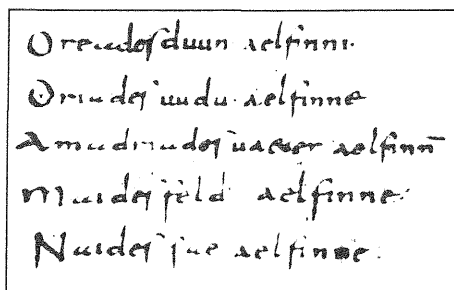 Oreades duun aelfinni·
Driades uudu· aelfinne
Amadriades uaeter aelfinn̄
Maides feld aelfinne·
Naides sae aelfinne·